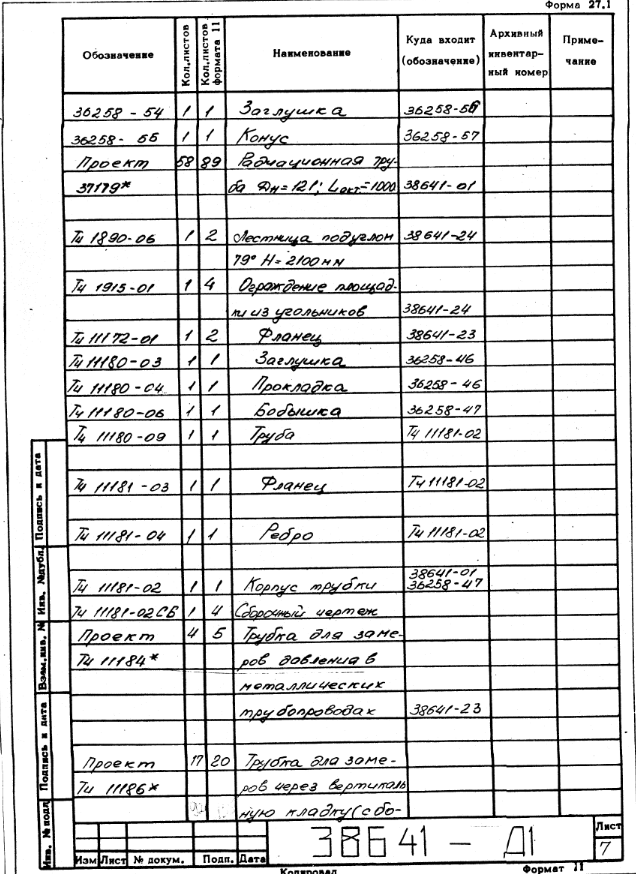 Форма 27.1
Обозначение Кол.листов Кол.листов формата 11 Наименование Куда входит (обозначение) Архивный инвентарный номер Примечание
36258-54 1 1 Заглушка 36258-56
36258-55 1 1 Конус 36258-57
Проект 58 89 Радиационная тру-
37179* ба Dн=121; Lакт=1000 38641-01
Тч 1890-06 1 2 Лестница под углом 38641-24
79° H=2100мм
Тч 1915-01 1 4 Ограждение площад-
ки из угольников 38641-24
Тч 11172-01 1 2 Фланец 38641-23
Тч 11180-03 1 1 Заглушка 36258-46
Тч 11180-04 1 1 Прокладка 36258-46
Тч 11180-06 1 1 Бобышка 36258-47
Тч 11180-09 1 1 Труба Тч 11181-02
Тч 11181-03 1 1 Фланец Тч 11181-02
Тч 11181-04 1 1 Ребро Тч 11181-02
38641-01
Тч 11181-02 1 1 Корпус трубки 36258-47
Тч 11181-02СБ 1 4 Сборочный чертеж
Проект 4 5 Трубка для заме-
Тч 11184* ров давления в
металлических
трубопроводах 38641-23
Проект 17 20 Трубка для заме-
Тч 11186* ров через вертикаль
ную кладку (с бо-
Инв. № подл Подпись и дата Взам.инв. № Инв. №дубл. Подпись и дата
Изм Лист № докум. Подп. Дата
38641 - Д1
Лист
7
Копировал Формат 11